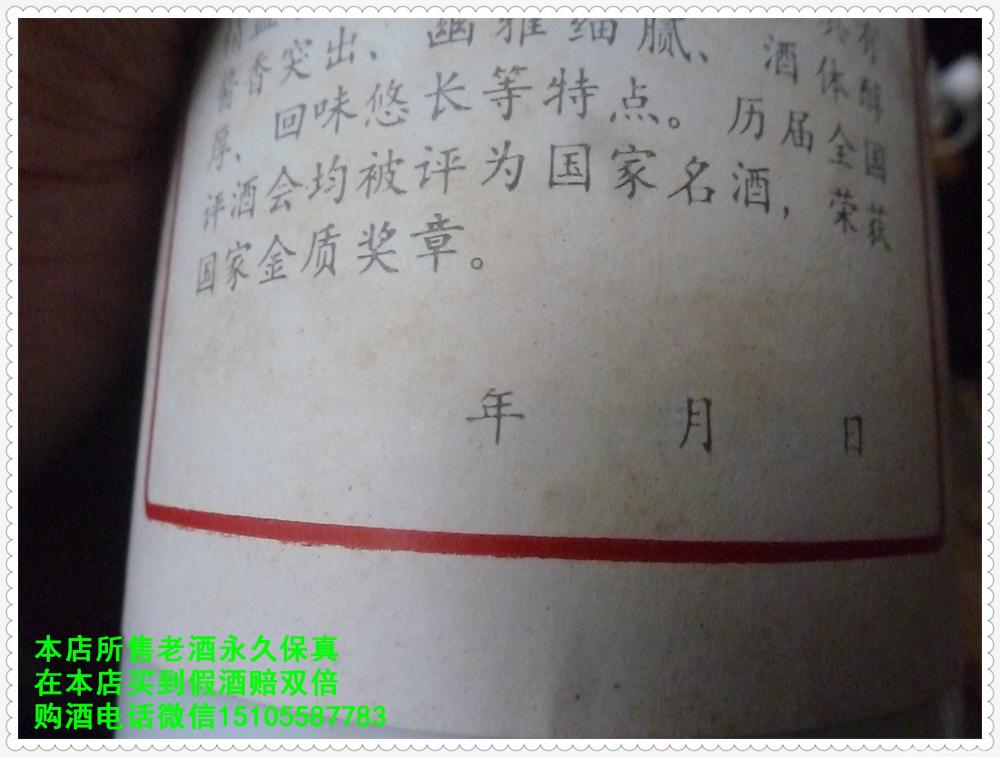 具有
酱香突出、幽雅细腻、酒体醇
厚、回味悠长等特点。历届全国
评酒会均被评为国家名酒，荣获
国家金质奖章。
年 月 日
本店所售老酒永久保真
在本店买到假酒赔双倍
购酒电话微信15105587783